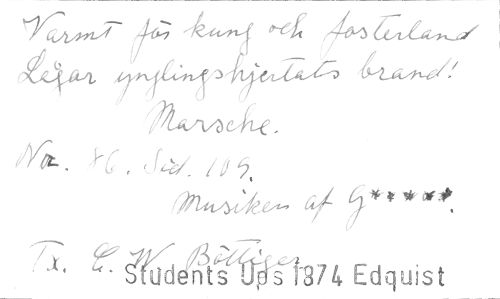 Varmt för kung och fosterland
Lågar ynglingshjertats brand!
Marsche.
No. 86. Sid. 109.
Musiken af G*****.
Tx. C. W. Böttiger.
Students Ups 1874 Edquist